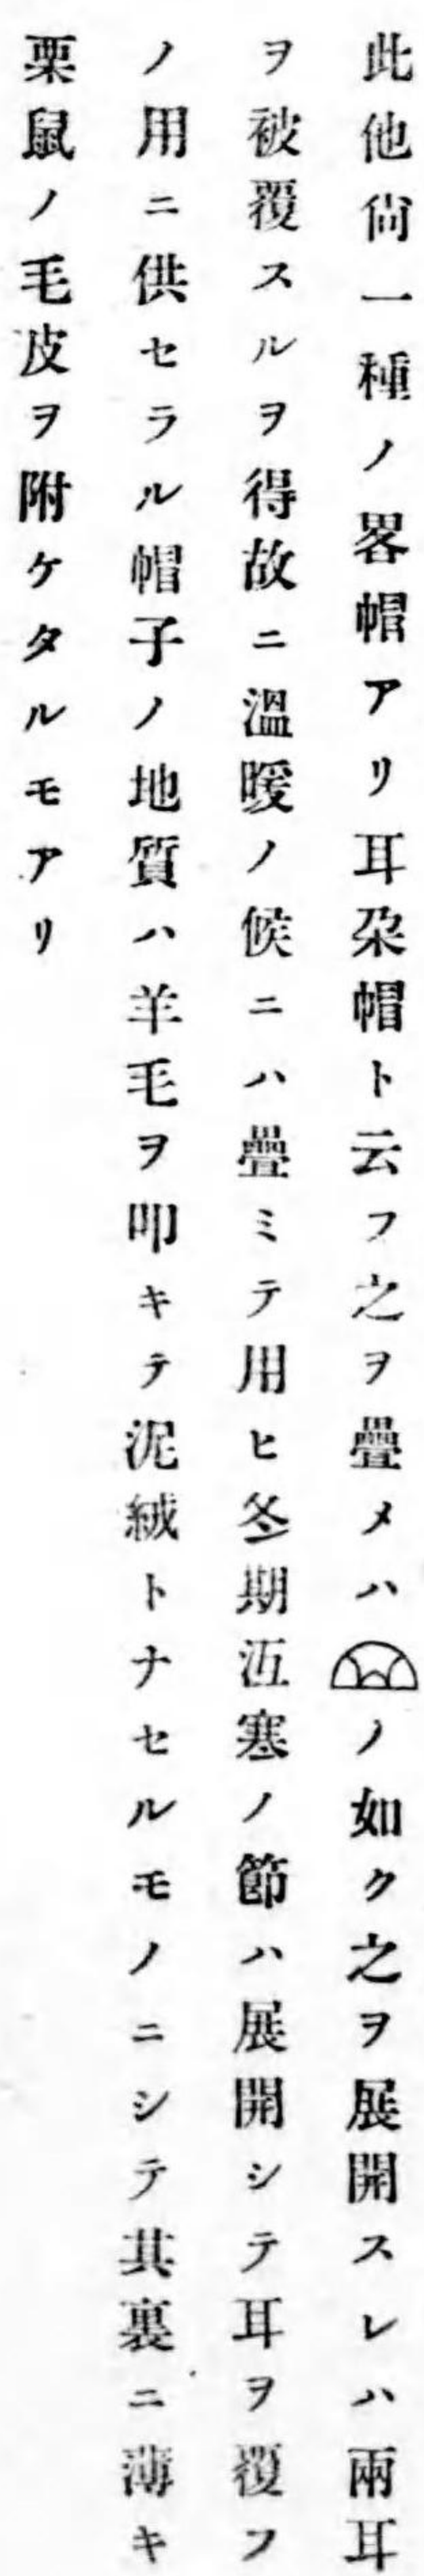 此他尙一種ノ畧帽アリ耳朶帽ト云フ之ヲ疊メハノ如ク之ヲ展開スレハ兩耳
ヲ被覆スルヲ得故ニ溫暖ノ候ニハ疊ミテ用ヒ冬期沍寒ノ節ハ展開シテ耳ヲ覆フ
ノ用ニ供セラル帽子ノ地質ハ羊毛ヲ叩キテ泥絨トナセルモノニシテ其裏ニ薄キ
栗鼠ノ毛皮ヲ附ケタルモアリ